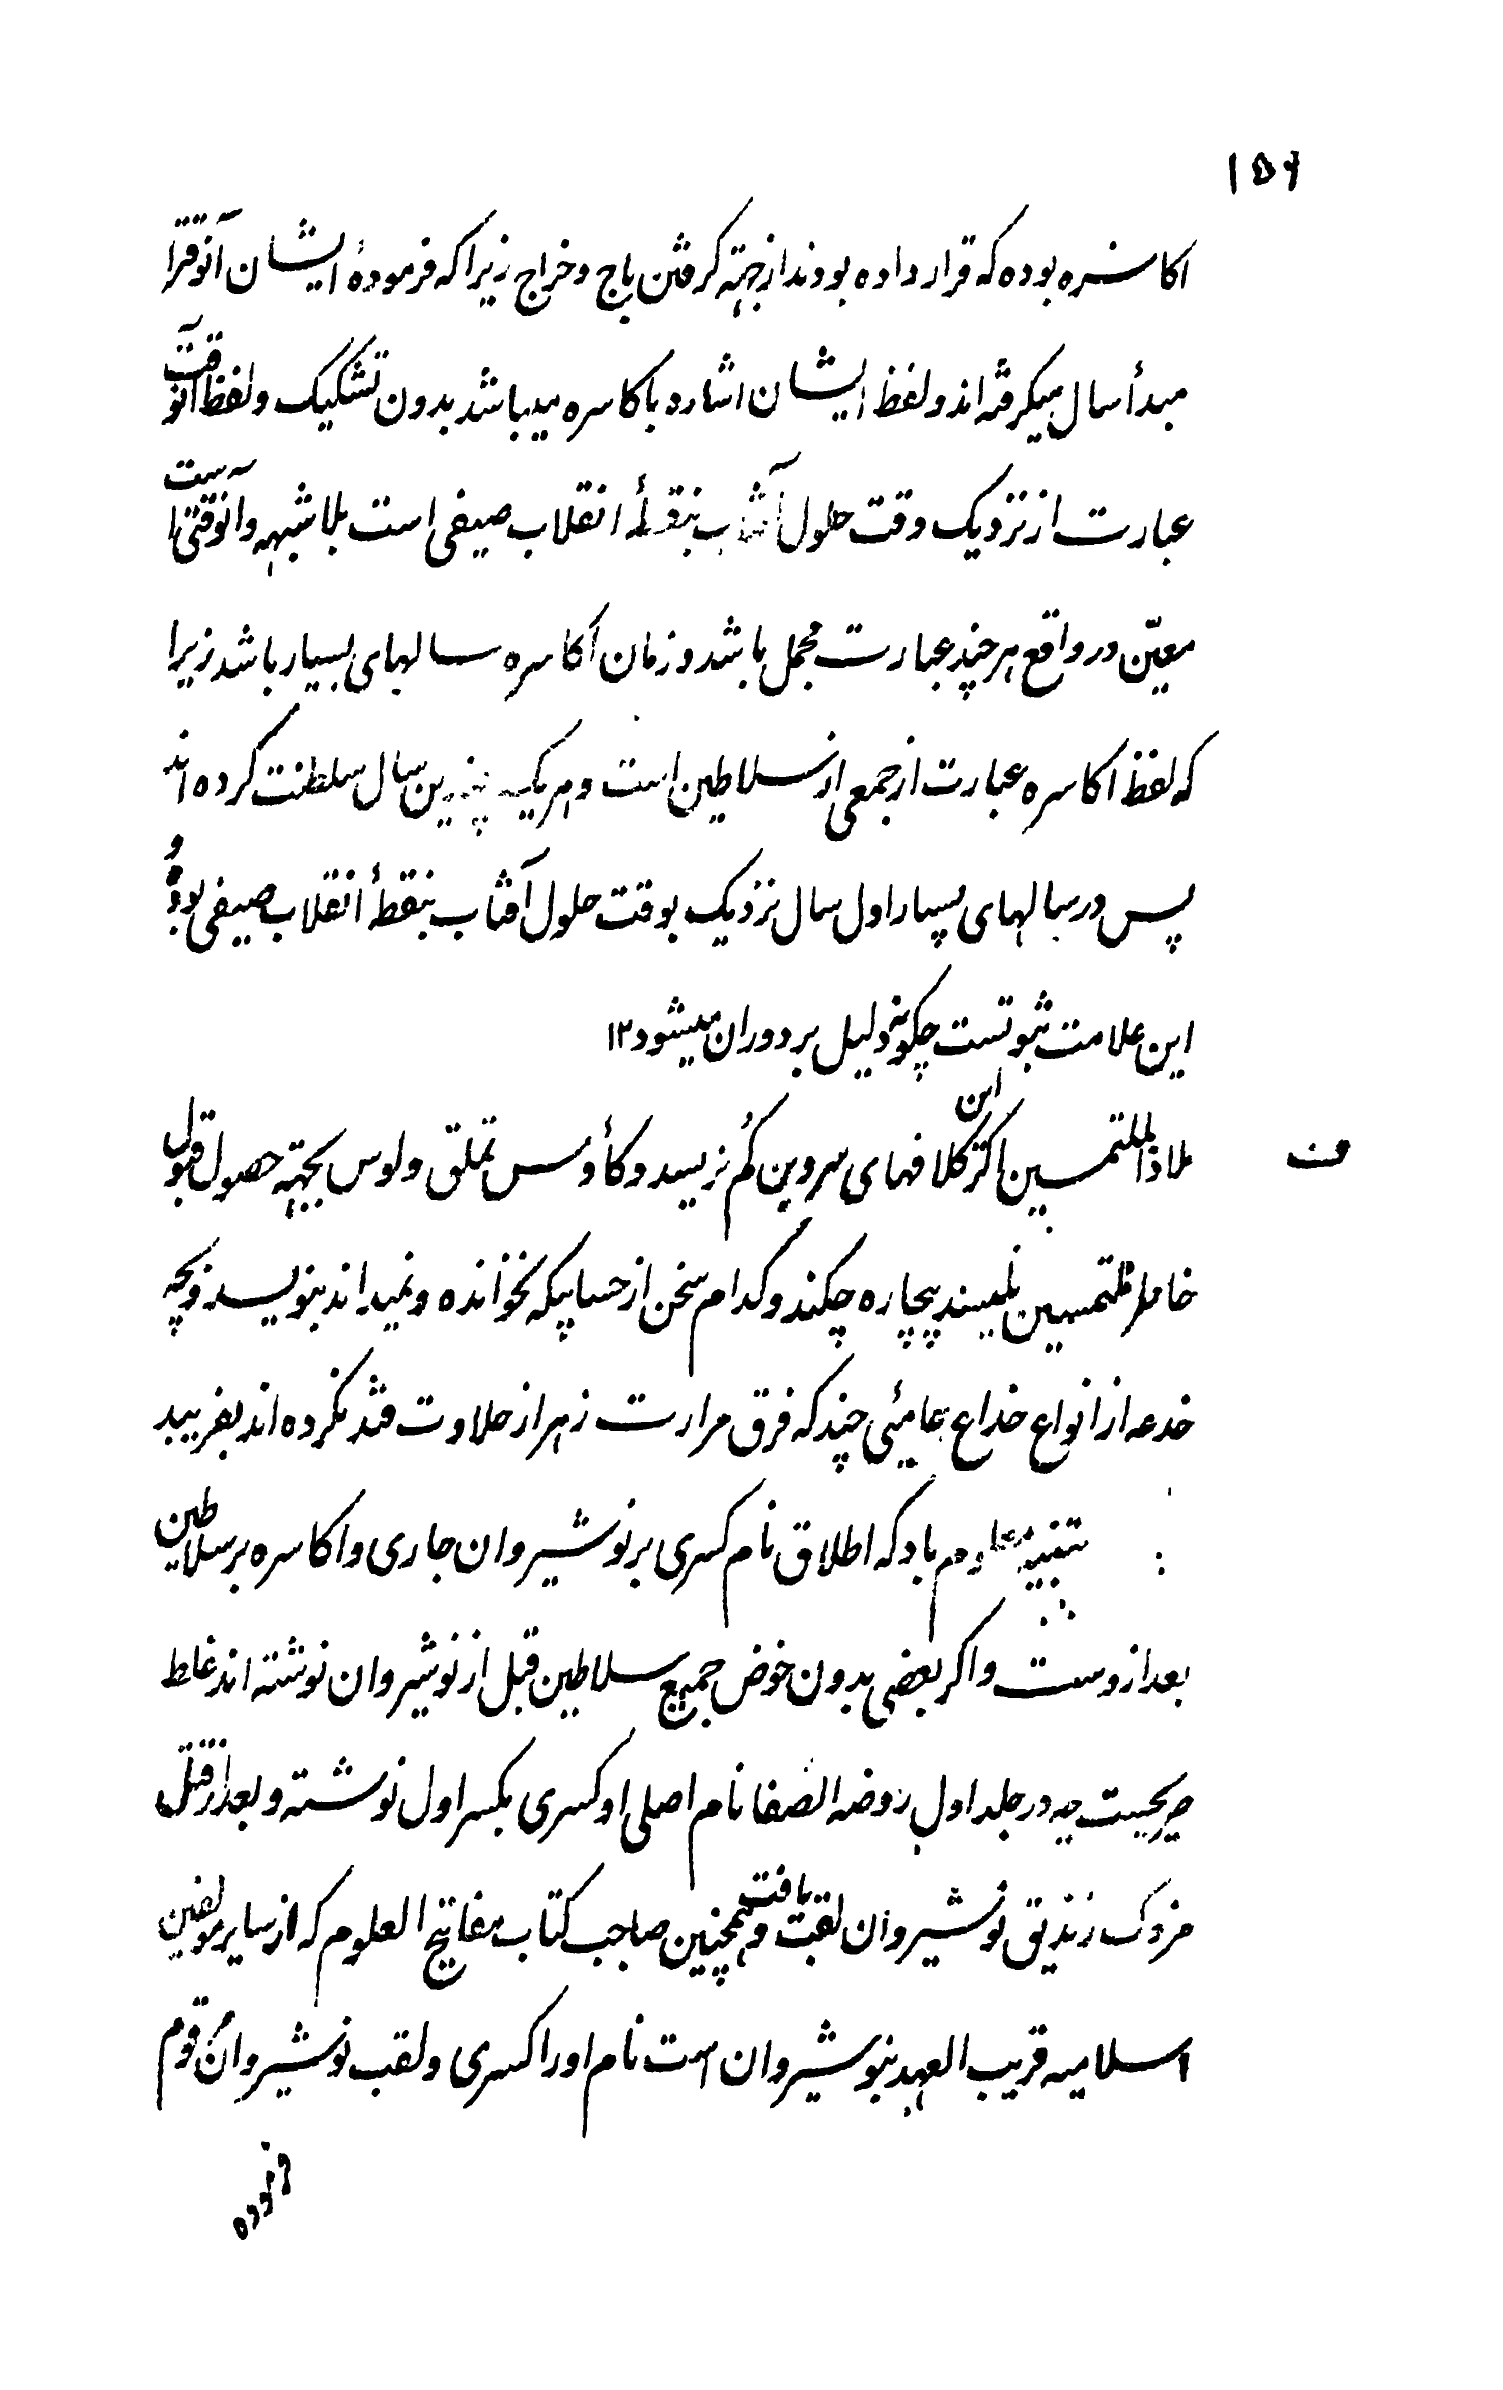 ۱۵۶
اکاسره بوده که قرار داده بودند از جهتِه کرفتن باج و خراج زیرا که فرمودۀ ایشان آنوقترا
مبدأ سال میکرفته اند و لفظ ایشان اشاره باکاسره میباشد بدون تشکیک و لفظ آنوقت
عبارت از نزدیک وقت حلول آفتاب بنقطۀ انقلاب صیفی است بلا شبهه و آنوقتی است
معیّن در واقع هر چند عبارت مجمل باشد و زمان اکاسره سالهای بسیار باشد زیرا
که لفظ اکاسره عبارت از جمعی از سلاطین است و هریک چندین سال سلطنت کرده اند
پس در سالهای بسیار اول سال نزدیک بوقت حلول آفتاب بنقطۀ انقلاب صیفی بوده و
این علامت ثبوتست چکونه دلیل بر دوران میشود ۱۲
من ملاذ الملتمسین اکر این کلافهای سر و بن کُم نریسد و کأوس تملق و لوس بجهتِه حصول قبول
خاطر ملتمسین نلیسد بیچاره چکند و کدام سخن از حسابیکه نخوانده و نمیداند بنویسد و بچه
خدعه از انواع خداع عامیئی چند که فرق مرارت زهر از حلاوت قند نکرده اند بفریبد
تنبیه معلوم باد که اطلاق نام کسری بر نوشیروان جاری و اکاسره بر سلاطین
بعد از وست و اکر بعضی بدون خوض جمیع سلاطین قبل از نوشیروان نوشته اند غلط
صریحیست چه در جلد اول روضه الصفا نام اصلی او کسری بکسر اول نوشته و بعد از قتل
مزدک زندیق نوشیروان لقب یافت و همچنین صاحب کتاب مفاتیح العلوم که از سایر مولفین
اسلامیه قریب العهد بنوشیروان است نام او را کسری و لقب نوشیروان مرقوم